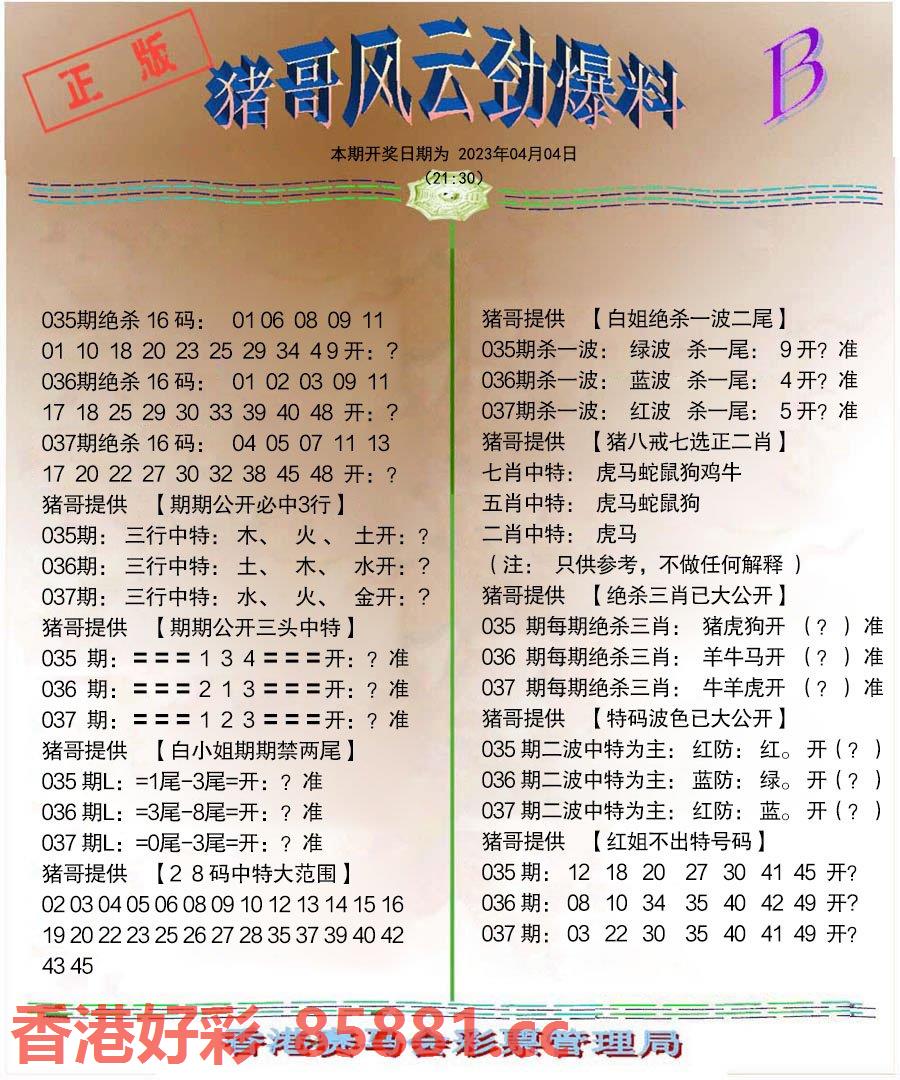 正版
猪哥风云劲爆料
B
本期开奖日期为 2023年04月04日
(21:30)
035期绝杀16码： 01 06 08 09 11
01 10 18 20 23 25 29 34 49开：?
036期绝杀16码： 01 02 03 09 11
17 18 25 29 30 33 39 40 48 开：?
037期绝杀16码： 04 05 07 11 13
17 20 22 27 30 32 38 45 48 开：?
猪哥提供 【期期公开必中3行】
035期：三行中特：木、 火、 土开：?
036期：三行中特：土、 木、 水开：?
037期：三行中特：水、 火、 金开：?
猪哥提供 【期期公开三头中特】
035 期：===134===开：? 准
036 期：===213===开：? 准
037 期：===123===开：? 准
猪哥提供 【白小姐期期禁两尾】
035期L：=1尾-3尾=开：? 准
036期L：=3尾-8尾=开：? 准
037期L：=0尾-3尾=开：? 准
猪哥提供 【28码中特大范围】
02 03 04 05 06 08 09 10 12 13 14 15 16
19 20 22 23 25 26 27 28 35 37 39 40 42
43 45
猪哥提供 【白姐绝杀一波二尾】
035期杀一波： 绿波 杀一尾： 9开? 准
036期杀一波： 蓝波 杀一尾： 4开? 准
037期杀一波： 红波 杀一尾： 5开? 准
猪哥提供 【猪八戒七选正二肖】
七肖中特： 虎马蛇鼠狗鸡牛
五肖中特： 虎马蛇鼠狗
二肖中特： 虎马
(注： 只供参考，不做任何解释 )
猪哥提供 【绝杀三肖已大公开】
035 期每期绝杀三肖： 猪虎狗开 (? )准
036 期每期绝杀三肖： 羊牛马开 (? )准
037 期每期绝杀三肖： 牛羊虎开 (? )准
猪哥提供 【特码波色已大公开】
035期二波中特为主：红防：红。开(? )
036期二波中特为主：蓝防：绿。开(? )
037期二波中特为主：红防：蓝。开(? )
猪哥提供 【红姐不出特号码】
035期： 12 18 20 27 30 41 45 开?
036期： 08 10 34 35 40 42 49 开?
037期： 03 22 30 35 40 41 49 开?
香港好彩 85881.cc
香港赛马会彩票管理局